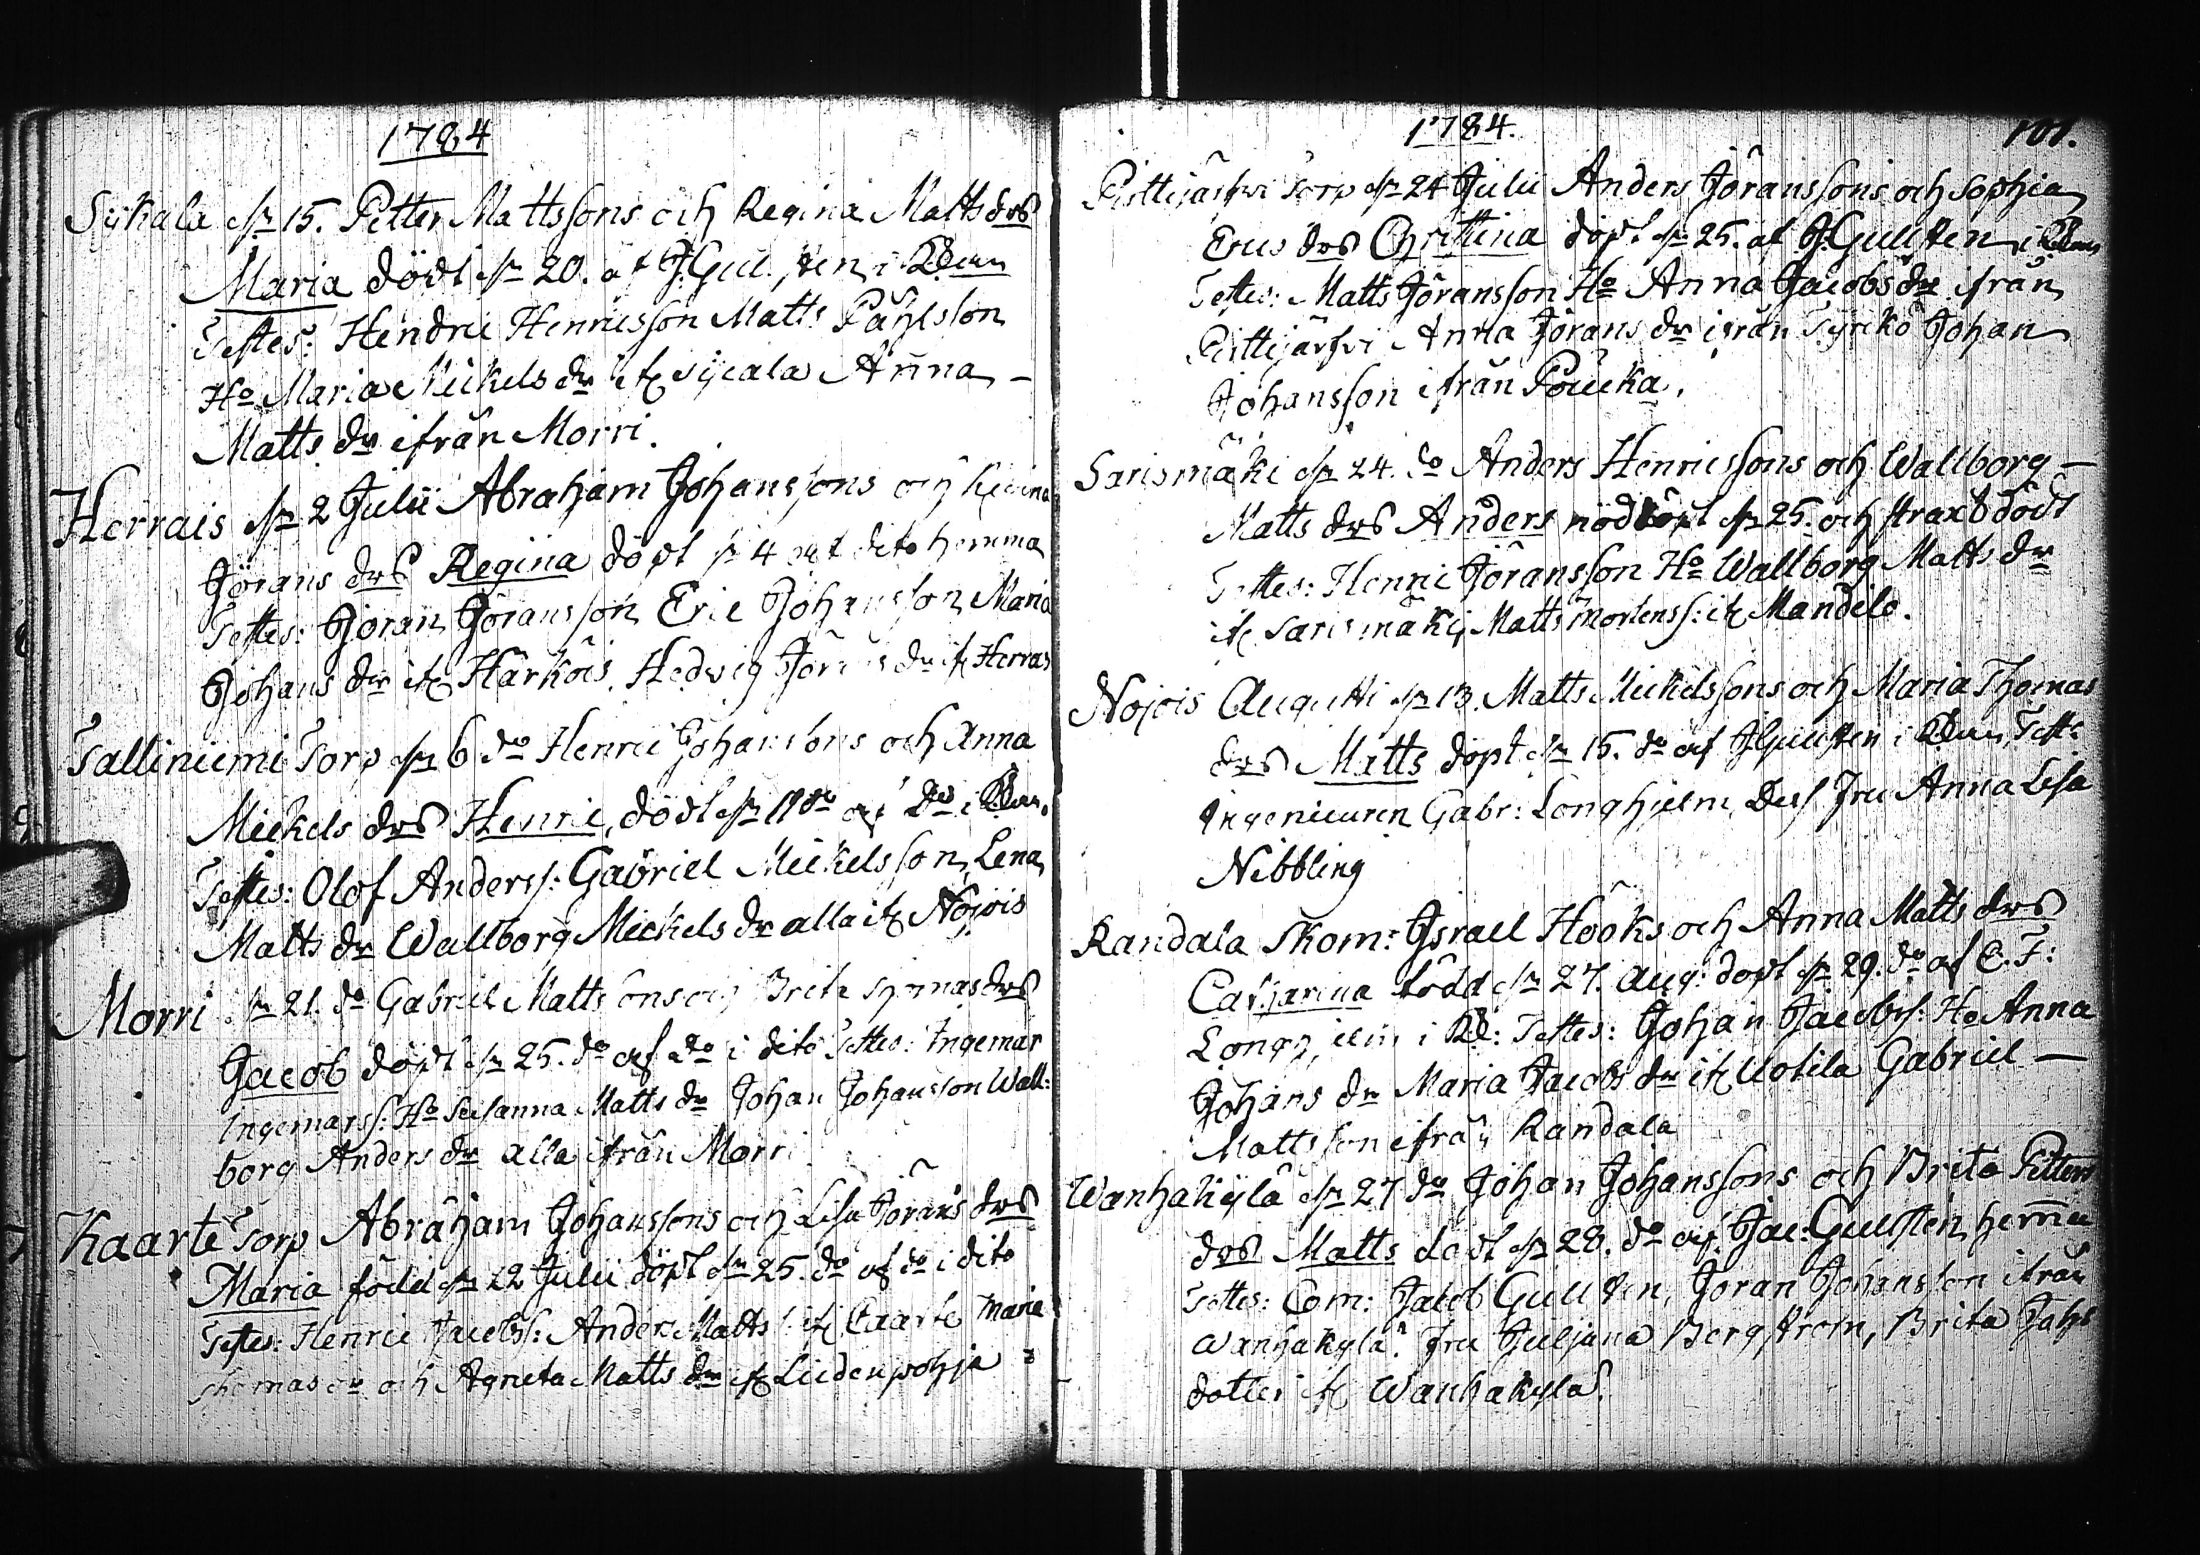 1784
Sykala d. 15. Petter Mattssons och Regina Matts drs
Maria döpt d. 20. af J. Gullsten i Kkian
Testes: Hendric Henricsson Matts Påhlsson
Ho Maria Mickels dr if. Sycala Anna
Matts dr ifrån Morri.
Herrais d. 2 Julii Abraham Johanssons och Regina
Jörans drs Regina döpt d. 4 af dito hemma
Testes: Jöran Jöransson Eric Johansson Maria
Johans dr if. Härköis, Hedvig Jörans dr if. Herrais
Talliniemi Torp d. 6 do Henric Johanssons och Anna
Mickels drs Henric, döpt d. 11 do af Do i Kkian.
Testes: Olof Anderss: Gabriel Mickelsson, Lena
Matts dr Wallborg Mickels dr alla if. Nojois
Morri d. 21. do Gabriel Mattssons och Brita Thomas drs
Jacob döpt d. 25. do af do i dito Testes: Ingemar
Ingemarss: Ho Susanna Matts dr Johan Johansson Wall:
borg Anders dr alla ifrån Morri
Kaarte Torp Abraham Johanssons och Lisa Jörans drs
Maria född d. 22 Julii döpt d. 25. do af do i dito
Testes: Henric Jacobss: Anders Matts if. Caarte Maria
Thomas dr och Agneta Matts dr if. Liedenpohja
1784.
101.
Pisttijärfvi Torp d. 24 Julii Anders Jöranssons och Sophia
Erics drs Christina döpt d. 25. af J. Gullsten i Kkian
Testes: Matts Jöransson Ho Anna Jacobs dr ifrån
Pisttijärfvi Anna Jörans dr ifrån Tyrckö Johan
Johansson ifrån Poucka.
Sarismäki d. 24. do Anders Henricssons och Wallborg
Matts drs Anders nöddöpt d. 25. och straxt dödt
Testes: Henric Jöransson Ho Wallborg Matts dr
if. Sarismäki, Matts Mortenss: if. Mandelo.
Nojois Augusti d. 13. Matts Mickelssons och Maria Thomas
drs Matts döpt d. 15. do af J Gullsten i Kkian, Test:
Ingenieuren Gabr: Longhjelm, Dess Fru Anna Lisa
Nibbling
Randala Skom: Israel Hööks och Anna Matts drs
Catharina född d. 27. Aug: döpt d. 29. do af C. F:
Longhjelm i Kk: Testes: Johan Jacobss: Ho Anna
Johans dr Maria Jacobs dr if. Uotila Gabriel
Mattsson ifrån Randala
Wanhakylä d. 27 do Johan Johanssons och Brita Petters
drs Matts döpt d. 28. do af Jac: Gullsten hemma
Testes: Com: Jacob Gullsten, Jöran Johansson ifrån
Wanhakylä. Fru Juljana Bergström, Brita Johs
dotter if. Wanhakylä.